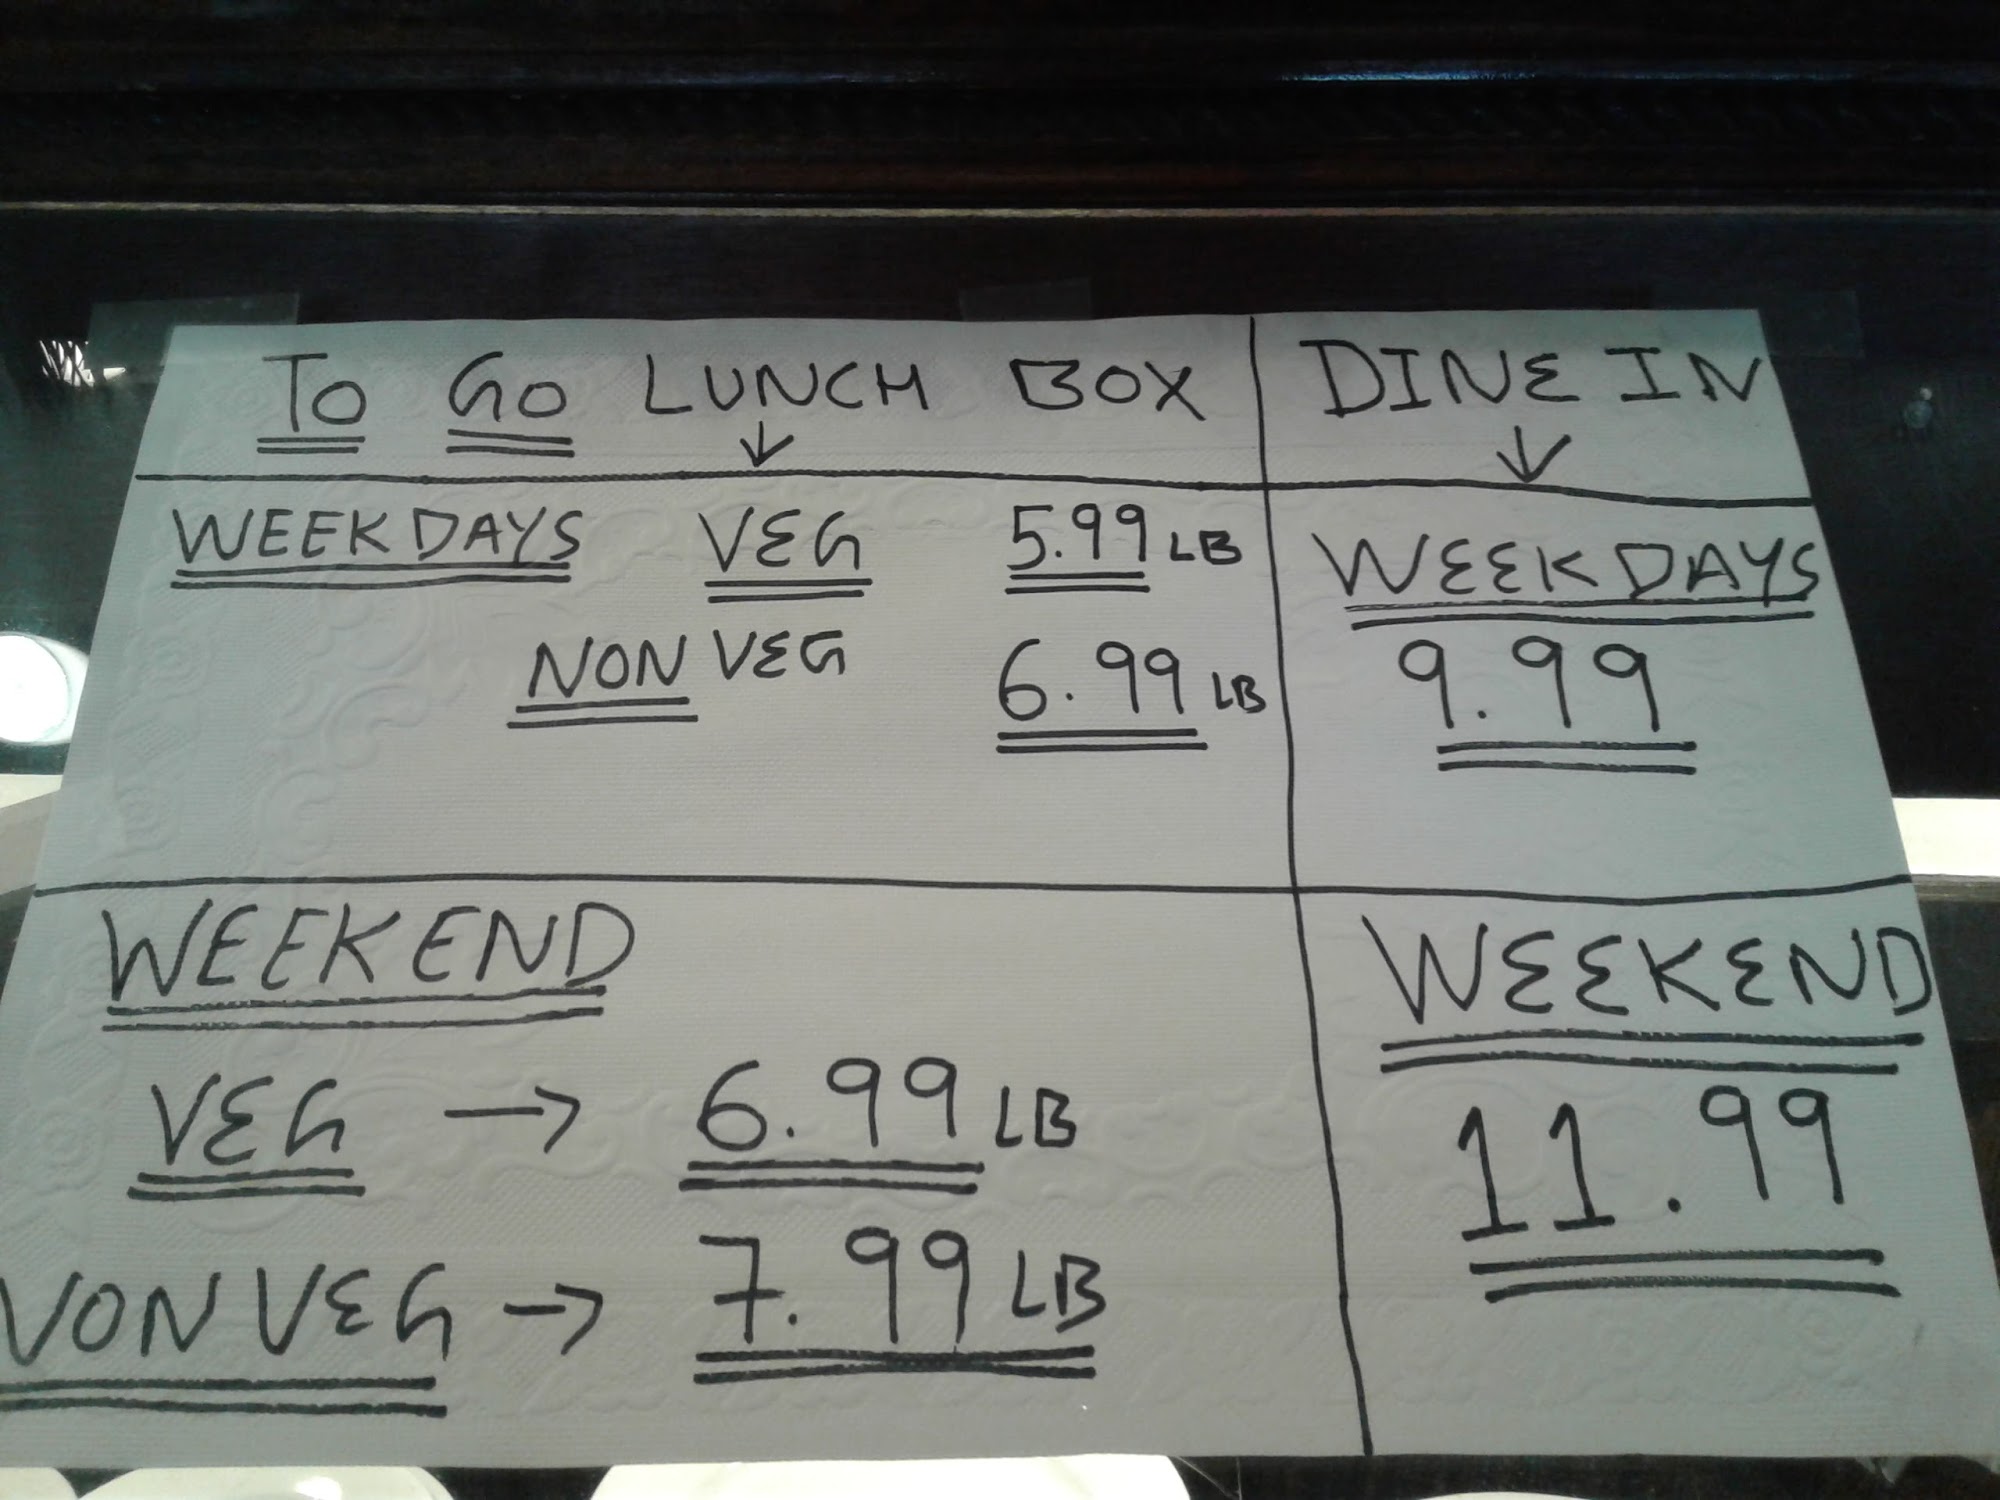 TO GO LUNCH BOX
WEEKDAYS VEG 5.99 LB
NON VEG 6.99 LB
WEEKEND
VEG → 6.99 LB
NON VEG → 7.99 LB
DINE IN
WEEKDAYS
9.99
WEEKEND
11.99